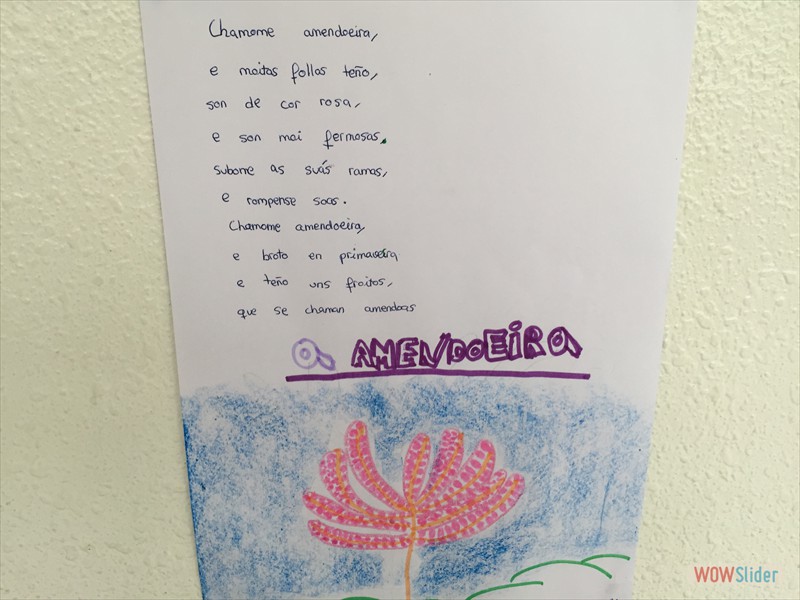 Chamome amendoeira,
e moitas follas teño,
son de cor rosa,
e son moi fermosas.
subome as suás ramas,
e rompense soas.
Chamome amendoeira,
e broto en primaveira
e teño uns froitos,
que se chaman amendoas
a AMENDOEIRA
WOWSlider